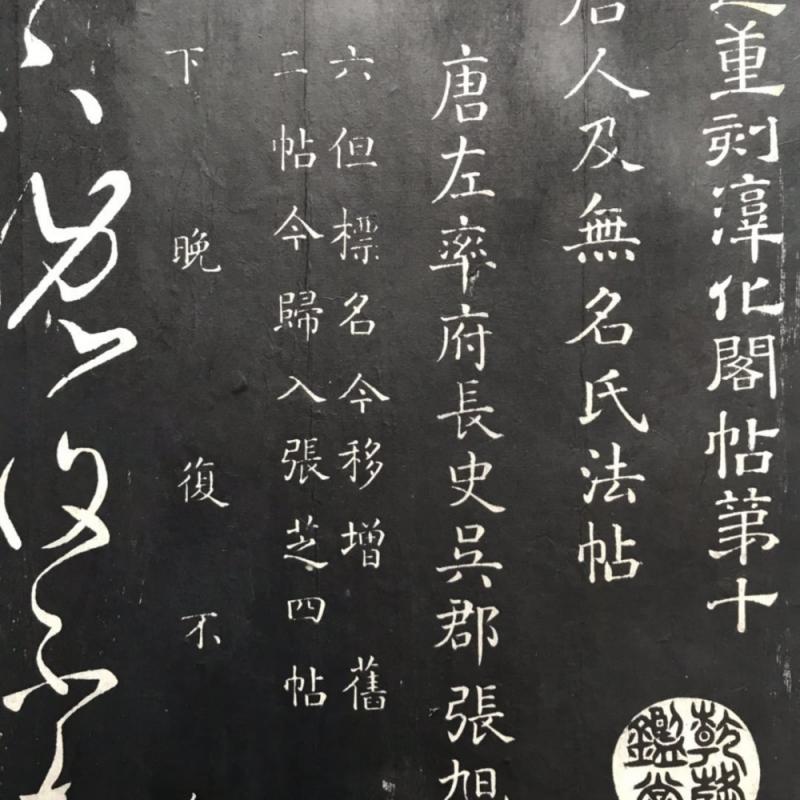 重刻淳化閣帖第十
人及無名氏法帖
唐左率府長史吳郡張旭
六但標名今移增 舊
二帖今歸入張芝四帖
下晚復不
下晚復不
乾隆鑑賞